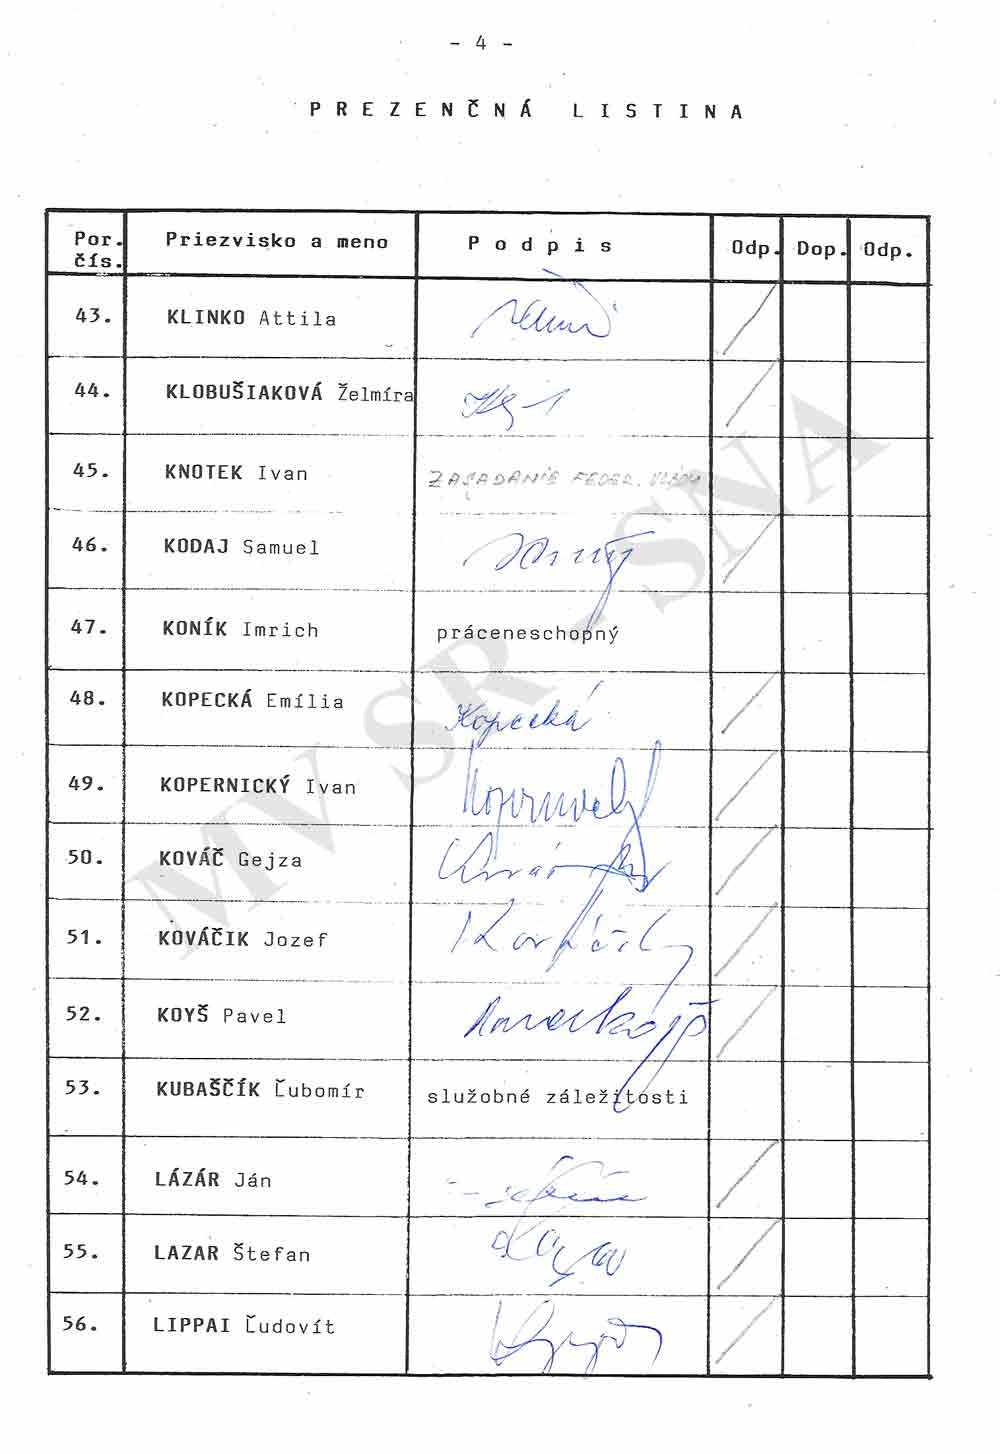 - 4 -
PREZENČNÁ LISTINA
Por. čís. Priezvisko a meno Podpis Odp. Dop. Odp.
43. KLINKO Attila
44. KLOBUŠIAKOVÁ Želmíra
45. KNOTEK Ivan ZASADANIE FEDER. VLÁDY
46. KODAJ Samuel
47. KONÍK Imrich práceneschopný
48. KOPECKÁ Emília Kopecká
49. KOPERNICKÝ Ivan
50. KOVÁČ Gejza
51. KOVÁČIK Jozef
52. KOYŠ Pavel
53. KUBAŠČÍK Ľubomír služobné záležitosti
54. LÁZÁR Ján
55. LAZAR Štefan
56. LIPPAI Ľudovít
MV SR - SNA